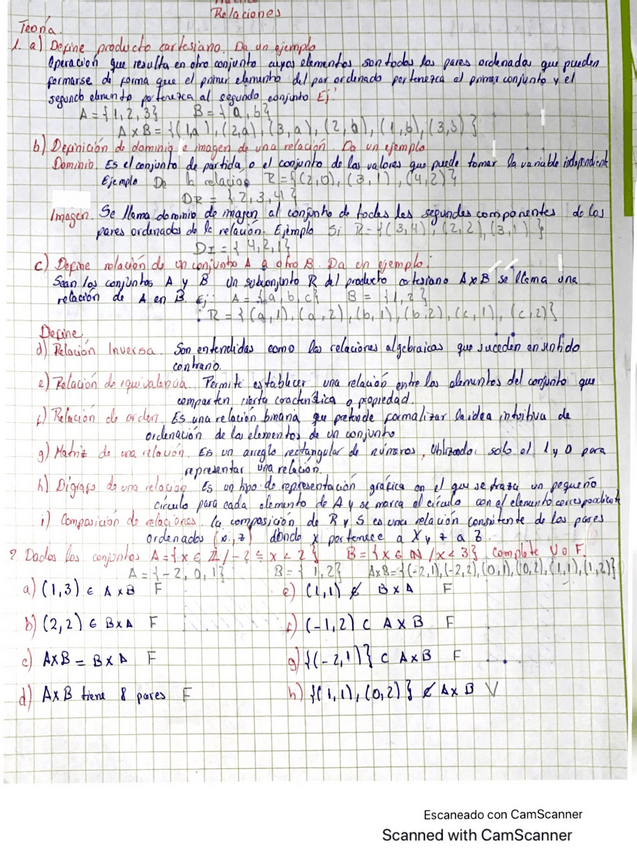 Relaciones
Teoría
1. a) Define producto cartesiano. Da un ejemplo
Operación que resulta en otro conjunto cuyos elementos son todos los pares ordenados que pueden
formarse de forma que el primer elemento del par ordenado pertenezca al primer conjunto y el
segundo elemento pertenezca al segundo conjunto Ej:
A = {1,2,3} B = {a,b}
A x B = {(1,a), (2,a), (3,a), (2,b), (1,b), (3,b)}
b) Definición de dominio e imagen de una relación. Da un ejemplo
Dominio. Es el conjunto de partida o el conjunto de los valores que puede tomar la variable independiente
Ejemplo De la relación R = {(2,0), (3,1), (4,2)}
DR = {2,3,4}
Imagen. Se llama dominio de imagen al conjunto de todas las segundas componentes de los
pares ordenados de la relación. Ejemplo Si R = {(3,4), (2,2), (3,1)}
DI = {4,2,1}
c) Define relación de un conjunto A a otro B. Da un ejemplo:
Sean los conjuntos A y B un subconjunto R del producto cartesiano A x B se llama una
relación de A en B Ej: A = {a,b,c} B = {1,2}
R = {(a,1), (a,2), (b,1), (b,2), (c,1), (c,2)}
Define
d) Relación Inversa. Son entendidas como las relaciones algebraicas que suceden en sentido
contrario.
e) Relación de equivalencia. Permite establecer una relación entre los elementos del conjunto que
comparten cierta característica o propiedad.
f) Relación de orden. Es una relación binaria que pretende formalizar la idea intuitiva de
ordenación de los elementos de un conjunto
g) Matriz de una relación. Es un arreglo rectangular de números, Utilizando solo el 1 y 0 para
representar una relación.
h) Digrafo de una relación. Es un tipo de representación gráfica en el que se traza un pequeño
círculo para cada elemento de A y se marca el círculo con el elemento correspondiente
i) Composición de relaciones. la composición de R y S es una relación consistente de los pares
ordenados (x,z) donde x pertenece a X y z a Z.
2 Dados los conjuntos A = {x ∈ Z / -2 ≤ x < 2} B = {x ∈ N / x < 3} complete V o F.
A = {-2, 0, 1} B = {1, 2} AxB = {(-2,1), (-2,2), (0,1), (0,2), (1,1), (1,2)}
a) (1,3) ∈ A x B F
e) (1,1) ∉ B x A F
b) (2,2) ∈ B x A F
f) (-1,2) ⊂ A x B F
c) AxB = B x A F
g) {(-2,1)} ⊂ A x B F
d) A x B tiene 8 pares F
h) {(1,1), (0,2)} ⊄ A x B V
Escaneado con CamScanner
Scanned with CamScanner